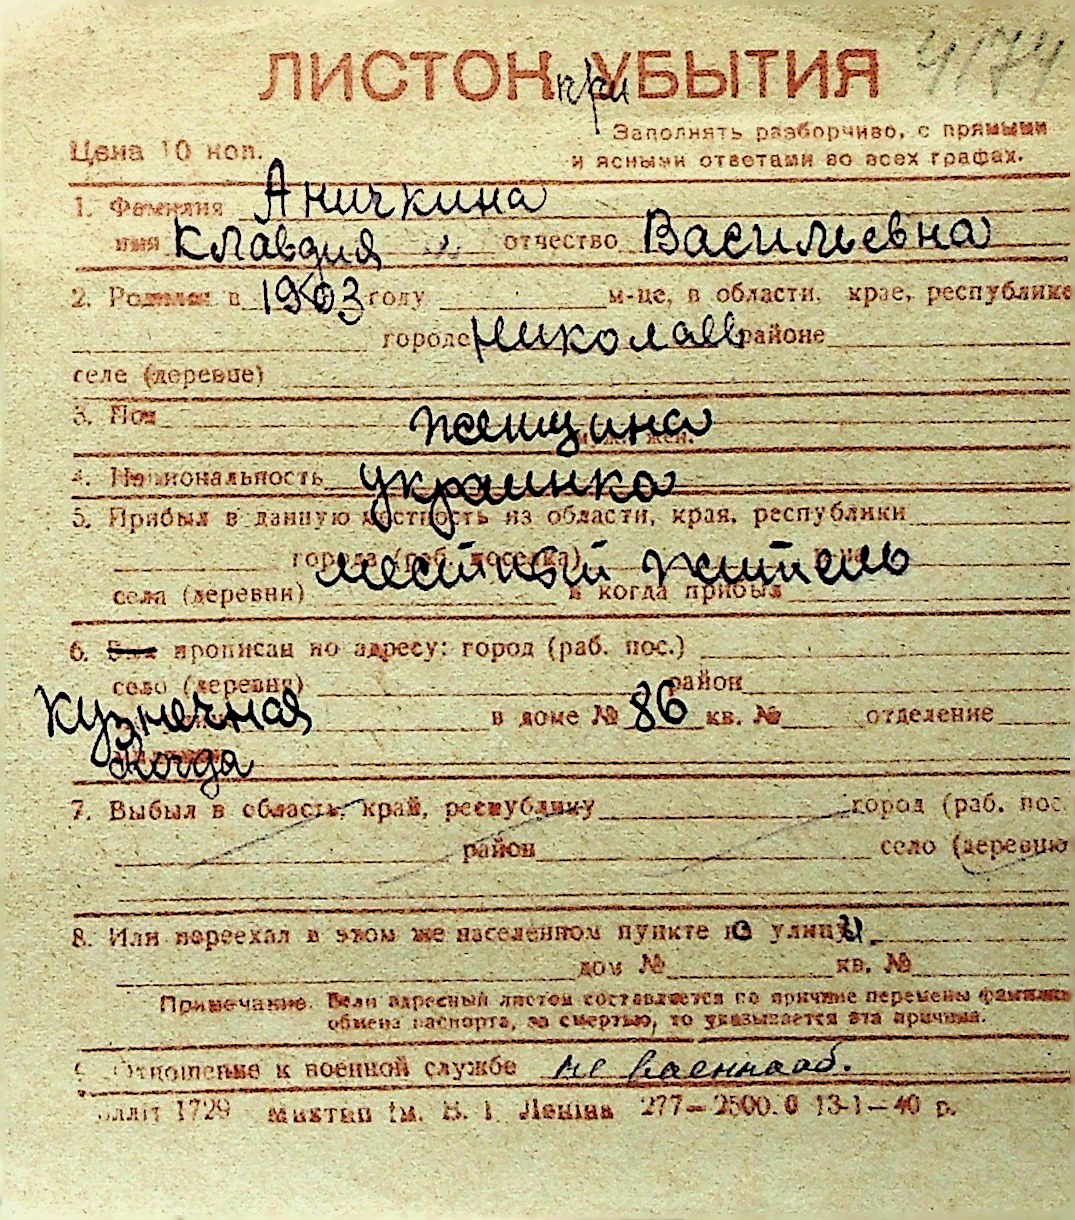 4174
ЛИСТОК при УБЫТИЯ
Заполнять разборчиво, с прямыми
Цена 10 коп.
и ясными ответами во всех графах.
1. Фамилия Аничкина
имя Клавдия отчество Васильевна
2. Родился в 1903 году м-це, в области, крае, республике
городе Николаев районе
селе (деревне)
3. Пол женщина
муж. жен.
4. Национальность украинка
5. Прибыл в данную местность из области, края, республики
города (раб. поселка) района
местный житель
села (деревни) и когда прибыл
6. Был прописан по адресу: город (раб. пос.)
село (деревня) район
Кузнечная в доме № 86 кв. № отделение
милиции когда
7. Выбыл в область, край, республику город (раб. пос.
район село (деревню
8. Или переехал в этом же населенном пункте на улицу
дом № кв. №
Примечание. Если адресный листок составляется по причине перемены фамилии
обмена паспорта, за смертью, то указывается эта причина.
9. Отношение к военной службе не военнооб.
лліт 1729 Миктип ім. В. І. Леніна 277—2500.0 13-1—40 р.